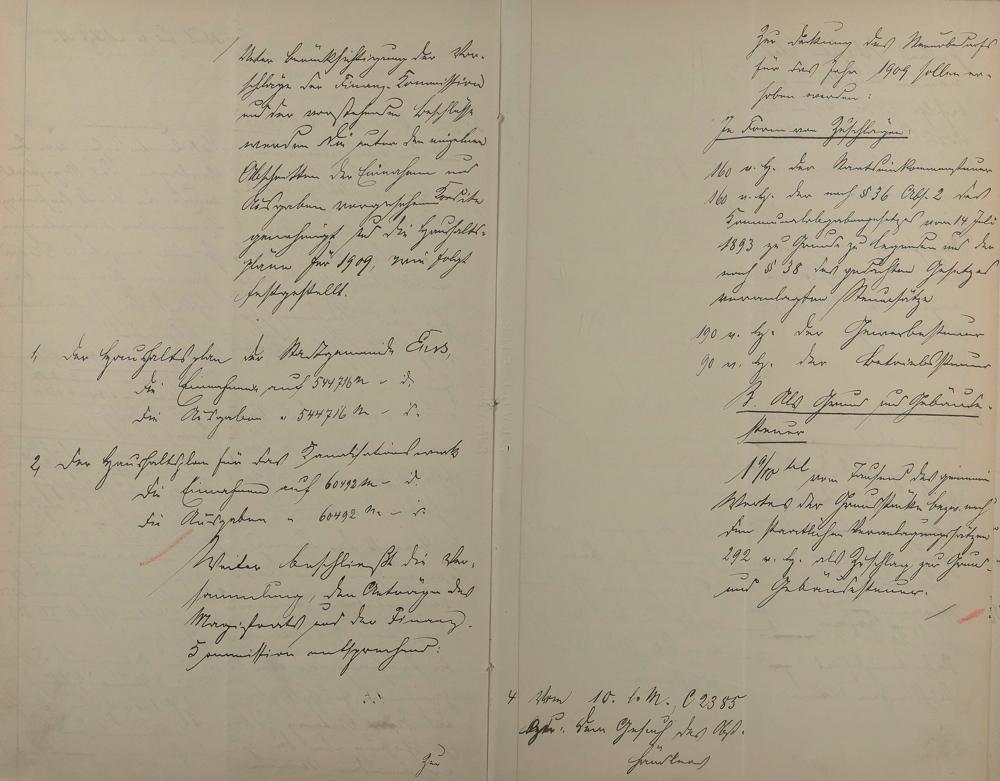 Unter Berücksichtigung der Vor-
schläge der Finanz-Kommission
und der vorstehenden Beschlüsse
werden die unter den einzelnen
Abschnitten der Einnahmen und
Ausgaben vorgesehenen Kredite
genehmigt und die Haushalts-
pläne für 1909, wie folgt
festgestellt.
1, Der Haushaltsplan der Stadtgemeinde Ems,
die Einnahmen auf 544716 M – d.
die Ausgaben " 544716 M – d.
2, Der Haushaltsplan für das Kanalisationswerk
die Einnahmen auf 60492 M – d.
die Ausgaben " 60492 M – d.
Weiter beschließt die Ver-
sammlung, den Anträgen des
Magistrats und der Finanz-
Kommission entsprechend:
Zur
Zur Deckung des Steuerbedarfs
für das Jahr 1909 sollen er-
hoben werden:
In Form von Zuschlägen:
160 v. H. der Staatseinkommensteuer
160 v. H. der nach § 36 Abs. 2 des
Kommunalabgabengesetzes vom 14 Juli
1893 zu Grunde zu legenden und der
nach § 38 des gedachten Gesetzes
veranlagten Steuersätze
190 v. H. der Gewerbesteuer
90 v. H. der Betriebssteuer
B. Als Grund und Gebäude-
steuer
vom Tausend des gemeinen
Wertes der Grundstücke bezw. nach
den staatlichen Veranlagungssätzen
292 v. H. als Zuschlag zur Grund-
und Gebäudesteuer.
4 Vom 10. l. M., C 2385
dem Gesuch des Obst-
händlers